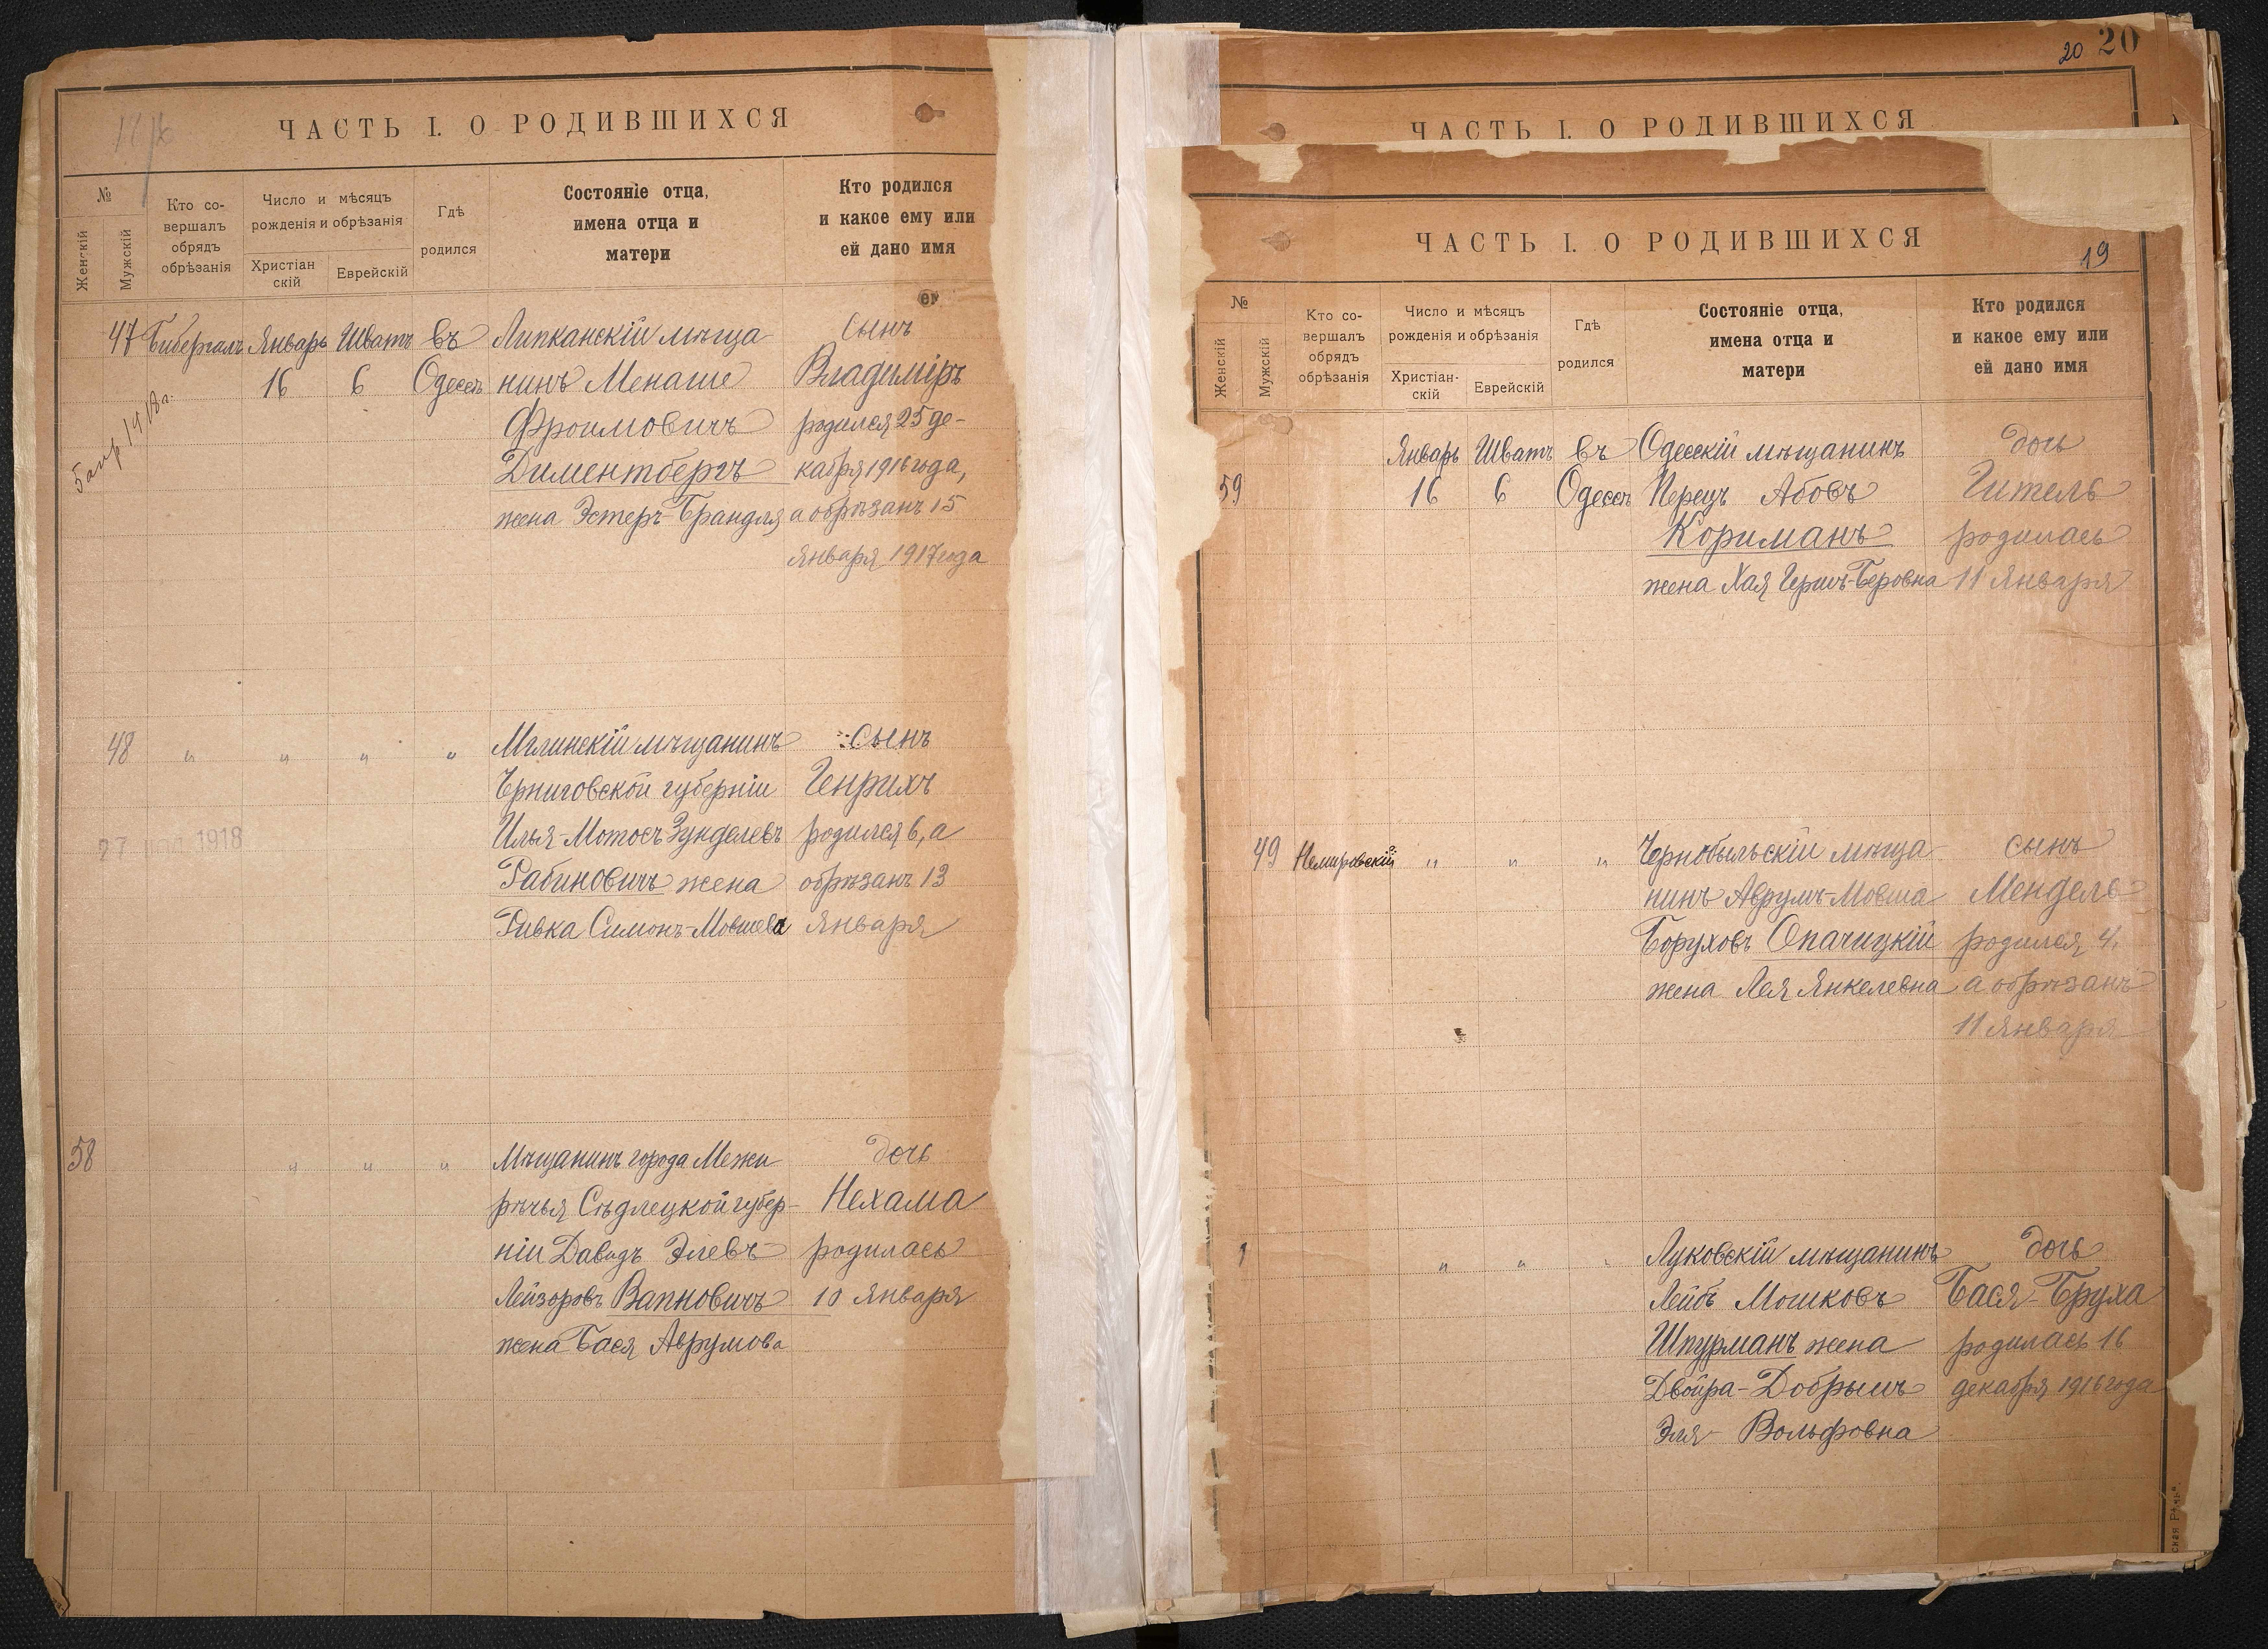 ЧАСТЬ I. О РОДИВШИХСЯ
№
Женскій
Мужскій
Кто со-
вершалъ
обрядъ
обрѣзанія
Число и мѣсяцъ
рожденія и обрѣзанія
Христіан
скій
Еврейскій
Гдѣ
родился
Состояніе отца,
имена отца и
матери
Кто родился
и какое ему или
ей дано имя
47 Бибергалъ Январь Шватъ въ Липканскій мѣща- сынъ
16 6 Одессѣ нинъ Менаше Владиміръ
Фроимовичъ родился 25 де-
Диментбергъ кабря 1916 года,
жена Эстеръ-Брандля а обрѣзанъ 15
Января 1917 года
5 апр 1918 г.
48 " " " " Мглинскій мѣщанинъ сынъ
Черниговской губерніи Генрихъ
Илья-Мотосъ Зунделевъ родился 6, а
Рабиновичъ жена обрѣзанъ 13
Ривка Симонъ-Мовшева Января
27 1918
58 " " " Мѣщанинъ города Межи- дочь
рѣчья Сѣдлецкой губер- Нехама
ніи Давидъ Элевъ- родилась
Лейзоровъ Вапновичъ 10 Января
жена Бася Аврумова
20 20
ЧАСТЬ I. О РОДИВШИХСЯ
ЧАСТЬ I. О РОДИВШИХСЯ
19
№
Женскій
Мужскій
Кто со-
вершалъ
обрядъ
обрѣзанія
Число и мѣсяцъ
рожденія и обрѣзанія
Христіан-
скій
Еврейскій
Гдѣ
родился
Состояніе отца,
имена отца и
матери
Кто родился
и какое ему или
ей дано имя
Январь Шватъ въ Одесскій мѣщанинъ дочь
59 16 6 Одессѣ Перецъ Абовъ Гитель
Кориманъ родилась
жена Хая Гершъ-Беровна 11 Января
49 Немировскій " " " Чернобыльскій мѣща- сынъ
нинъ Аврумъ-Мовша Мендель
Боруховъ Опачицкій родился 4,
жена Лея Янкелевна а обрѣзанъ
11 Января
" " " Луковскій мѣщанинъ дочь
Лейбъ Мошковъ Бася-Бруха
Шпурманъ жена родилась 16
Двойра-Добрышъ декабря 1916 года
Эля-Вольфовна